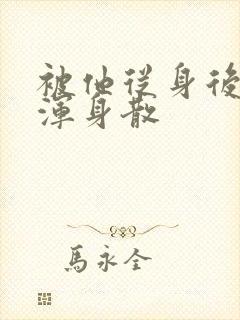 被他從身後
渾身散
馬永全